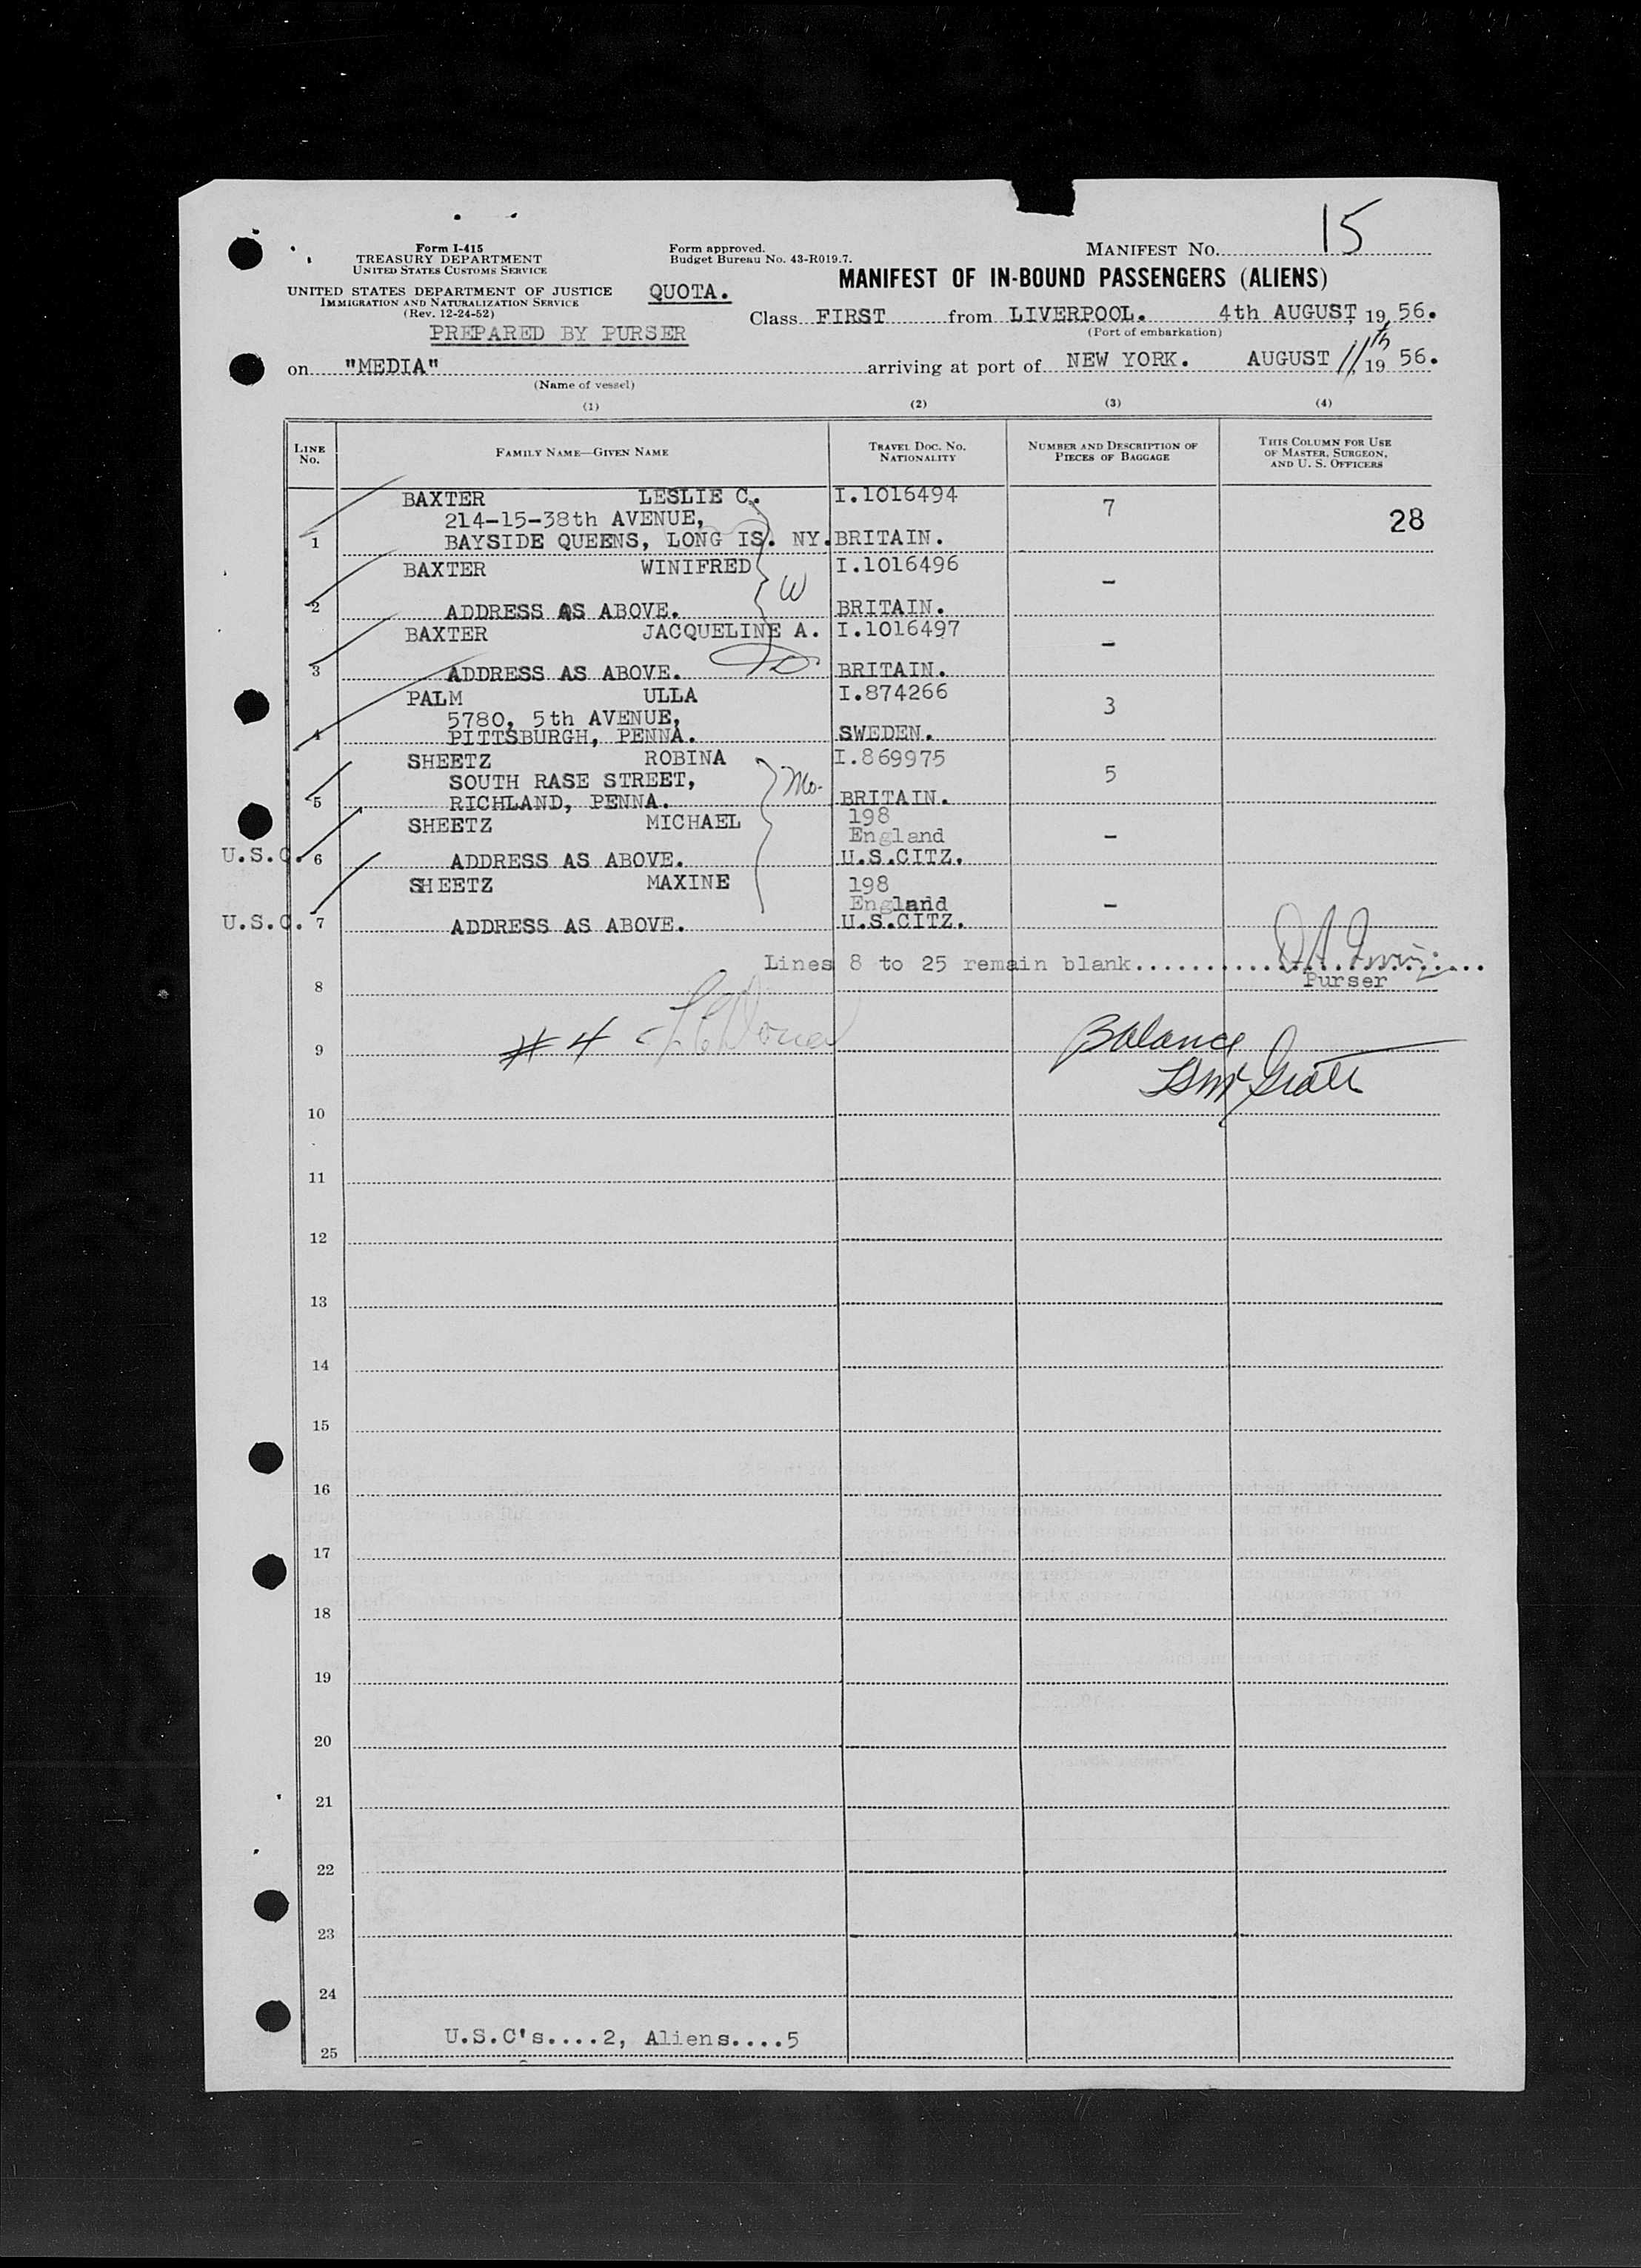 15
Form I-415
TREASURY DEPARTMENT
UNITED STATES CUSTOMS SERVICE
UNITED STATES DEPARTMENT OF JUSTICE
IMMIGRATION AND NATURALIZATION SERVICE
(Rev. 12-24-52)
PREPARED BY PURSER
Form approved.
Budget Bureau No. 43-R019.7.
QUOTA.
MANIFEST NO.
MANIFEST OF IN-BOUND PASSENGERS (ALIENS)
Class FIRST from LIVERPOOL. 4th AUGUST, 19 56.
(Port of embarkation)
on "MEDIA" arriving at port of NEW YORK. AUGUST 11th, 19 56.
(Name of vessel)
(1) (2) (3) (4)
LINE No. FAMILY NAME—GIVEN NAME TRAVEL DOC. NO. NATIONALITY NUMBER AND DESCRIPTION OF PIECES OF BAGGAGE THIS COLUMN FOR USE OF MASTER, SURGEON, AND U. S. OFFICERS
BAXTER LESLIE C. I.1016494 7
214-15-38th AVENUE, 28
1 BAYSIDE QUEENS, LONG IS. NY. BRITAIN.
BAXTER WINIFRED I.1016496 –
W
2 ADDRESS AS ABOVE. BRITAIN.
BAXTER JACQUELINE A. I.1016497 –
3 ADDRESS AS ABOVE. BRITAIN.
PALM ULLA I.874266 3
5780, 5th AVENUE,
4 PITTSBURGH, PENNA. SWEDEN.
SHEETZ ROBINA I.869975 5
SOUTH RASE STREET, Mo.
5 RICHLAND, PENNA. BRITAIN.
SHEETZ MICHAEL 198 –
England
U.S.C. 6 ADDRESS AS ABOVE. U.S.CITZ.
SHEETZ MAXINE 198 –
England
U.S.C. 7 ADDRESS AS ABOVE. U.S.CITZ.
Lines 8 to 25 remain blank
Purser
8
# 4 Balance
9
10
11
12
13
14
15
16
17
18
19
20
21
22
23
24
U.S.C's....2, Aliens....5
25